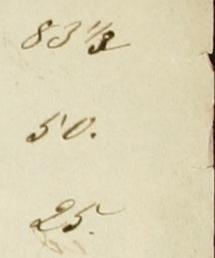 83 1/3
50.
25.